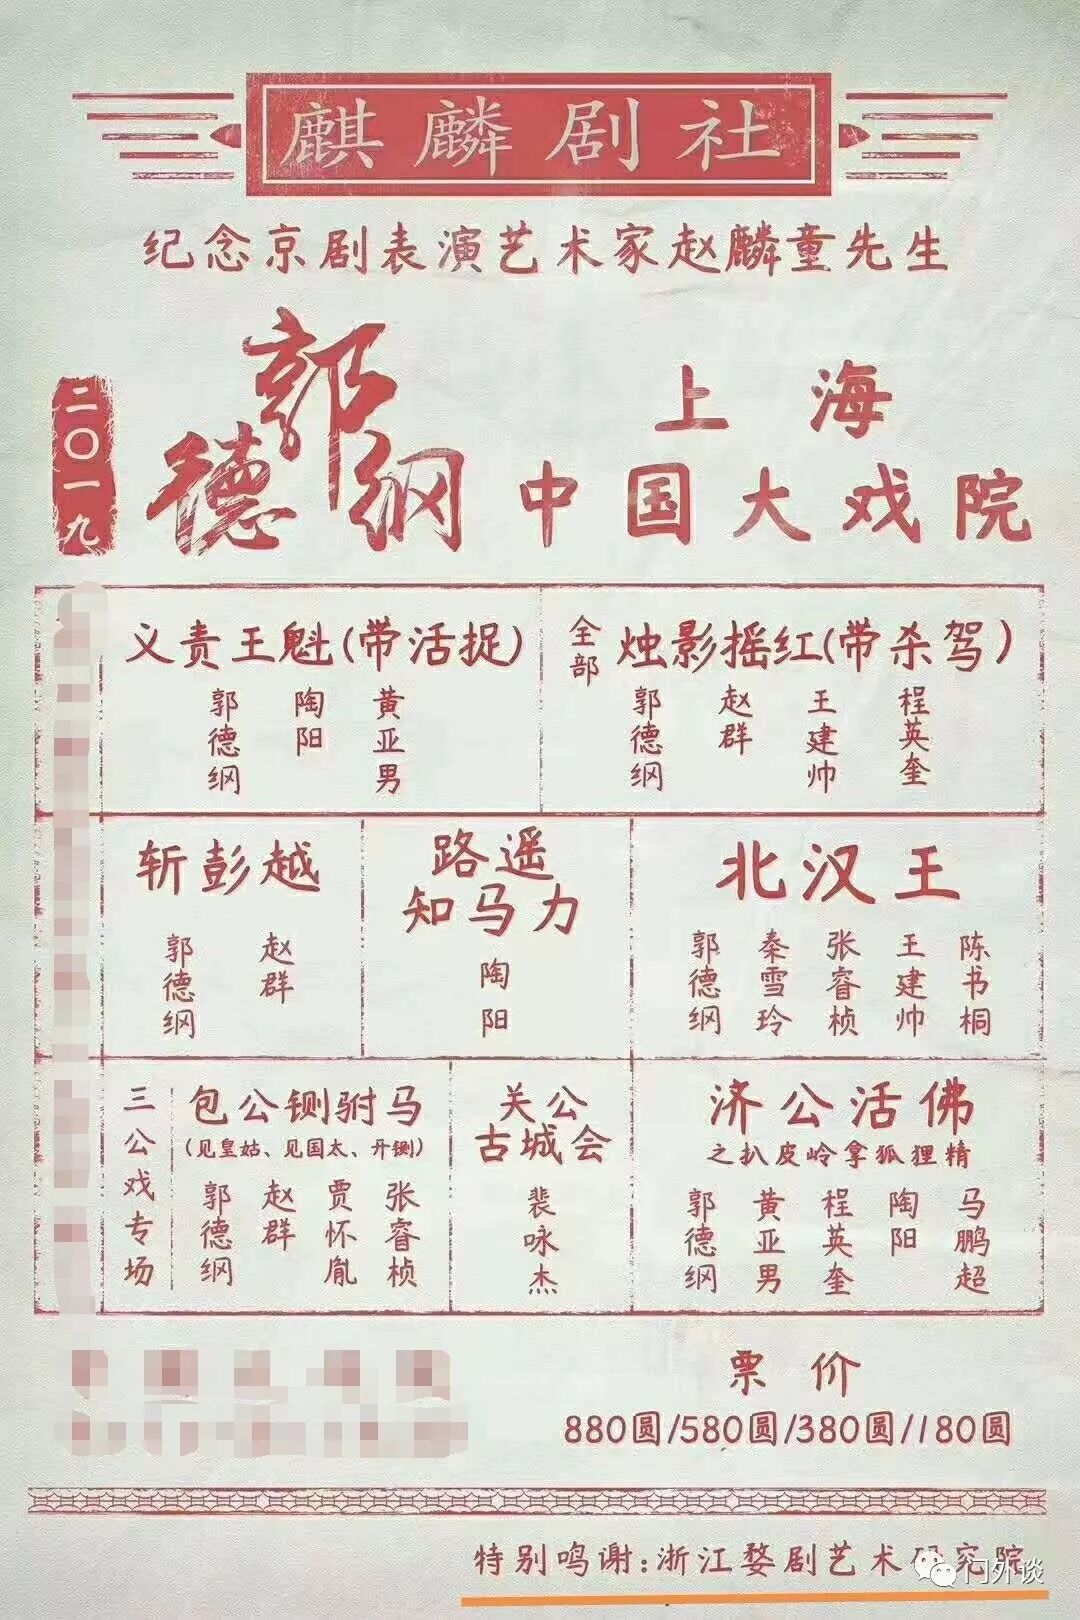 麒麟剧社
纪念京剧表演艺术家赵麟童先生
二〇一九
郭德纲
上海
中国大戏院
义责王魁(带活捉)
郭德纲 陶阳 黄亚男
全部 烛影摇红(带杀驾)
郭德纲 赵群 王建帅 程英奎
斩彭越
郭德纲 赵群
路遥
知马力
陶阳
北汉王
郭德纲 秦雪玲 张睿桢 王建帅 陈书桐
三公戏专场
包公铡驸马
(见皇姑、见国太、开铡)
郭德纲 赵群 贾怀胤 张睿桢
关公
古城会
裴咏杰
济公活佛
之扒皮岭拿狐狸精
郭德纲 黄亚男 程英奎 陶阳 马鹏超
票价
880圆/580圆/380圆/180圆
特别鸣谢:浙江婺剧艺术研究院
门外谈